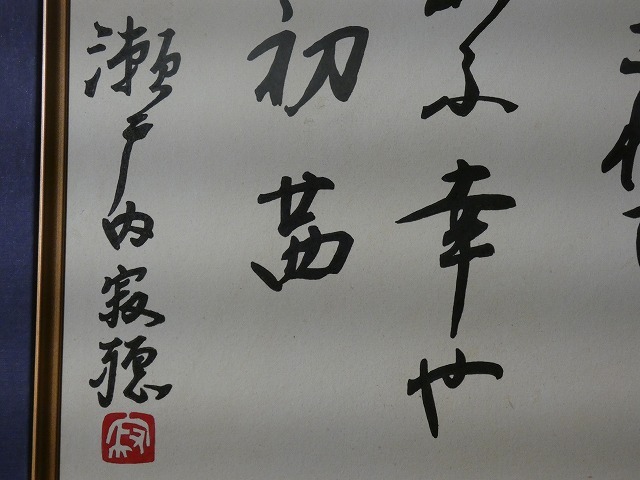 ふ幸や
初茜
瀬戸内寂聴
寂